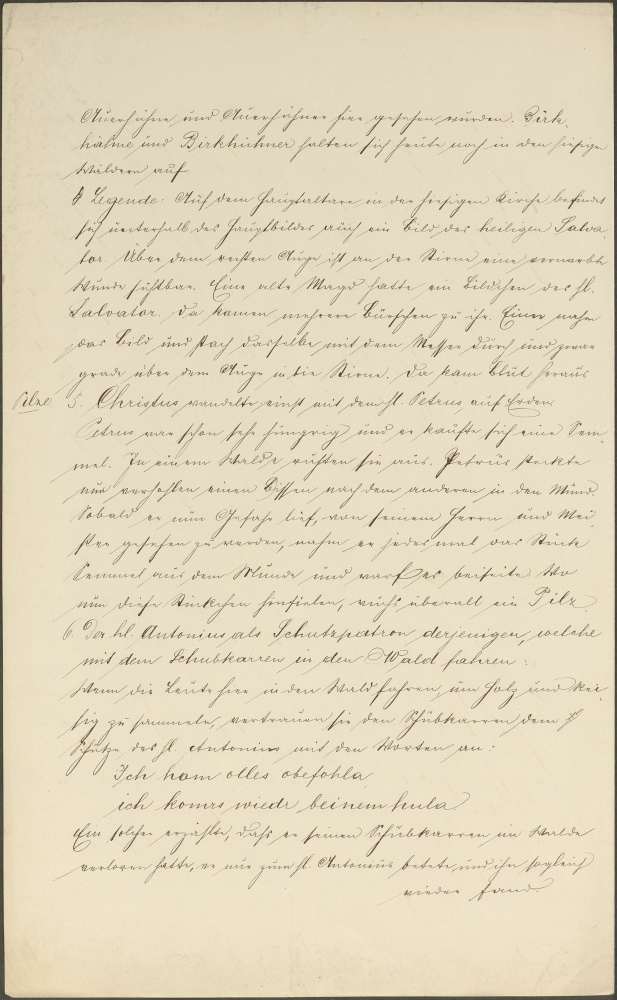 Auerhähne und Auerhühner hier gesehen wurden. Birk-
hähne und Birkhühner halten sich heute noch in den hiesigen
Wäldern auf
4 Legende: Auf dem Hauptaltare in der hiesigen Kirche befindet
sich unterhalb des Hauptbildes auch ein Bild des heiligen Salva-
tor. Über dem rechten Auge ist an der Stirne eine vernarbte
Wunde sichtbar. Eine alte Magd hatte ein Bildchen des hl.
Salvator. Da kamen mehrere Bürschchen zu ihr. Einer nahm
das Bild und stach dasselbe mit dem Messer durch und zwar
grade über dem Auge in die Stirne. Da kam Blut heraus
Pilze 5. Christus wandelte einst mit dem hl. Petrus auf Erden.
Petrus war schon sehr hungrig und er kaufte sich eine Sem-
mel. In einem Walde ruhten sie aus. Petrus steckte
nun verstohlen einen Bissen nach dem anderen in den Mund.
Sobald er nun Gefahr lief, von seinem Herrn und Mei-
ster gesehen zu werden, nahm er jedesmal das Stück
Semmel aus dem Munde und warf es beiseite. Wo
nun diese Stückchen hinfielen, wuchs überall ein Pilz.
6. Der hl. Antonius als Schutzpatron derjenigen, welche
mit dem Schubkarren in den Wald fahren:
Wenn die Leute hier in den Wald fahren, um Holz und Rei-
sig zu sammeln, vertrauen sie den Schubkarren dem
Schutze des hl. Antonius mit den Worten an:
Ich hom olles obefohla
ich komrs wiedr beinem hula
Ein solcher erzählte, daß er seinen Schubkarren im Walde
verloren hatte, er nun zum hl. Antonius betete und ihn sogleich
wieder fand.